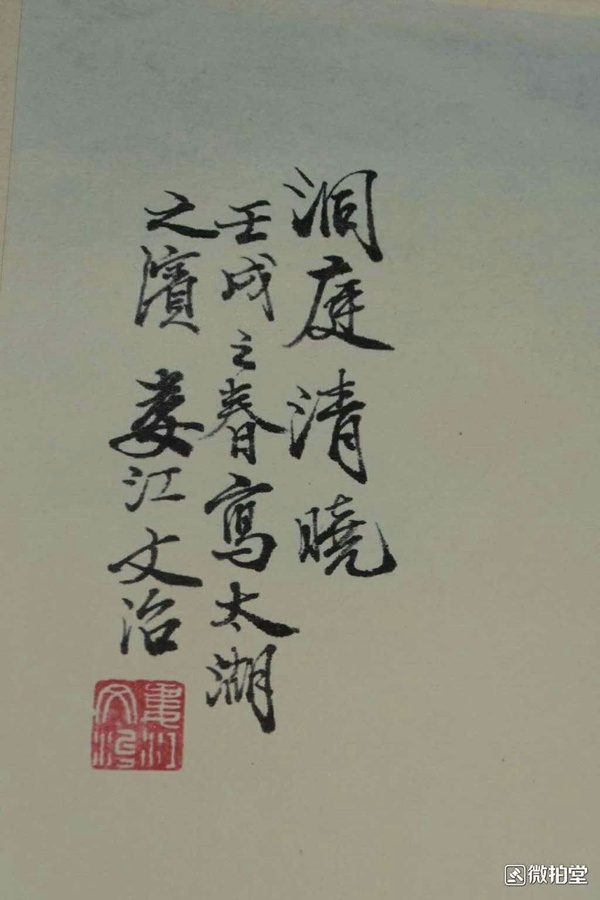 洞庭清曉
壬戌之春寫太湖
之濱 婁江文治
微拍堂